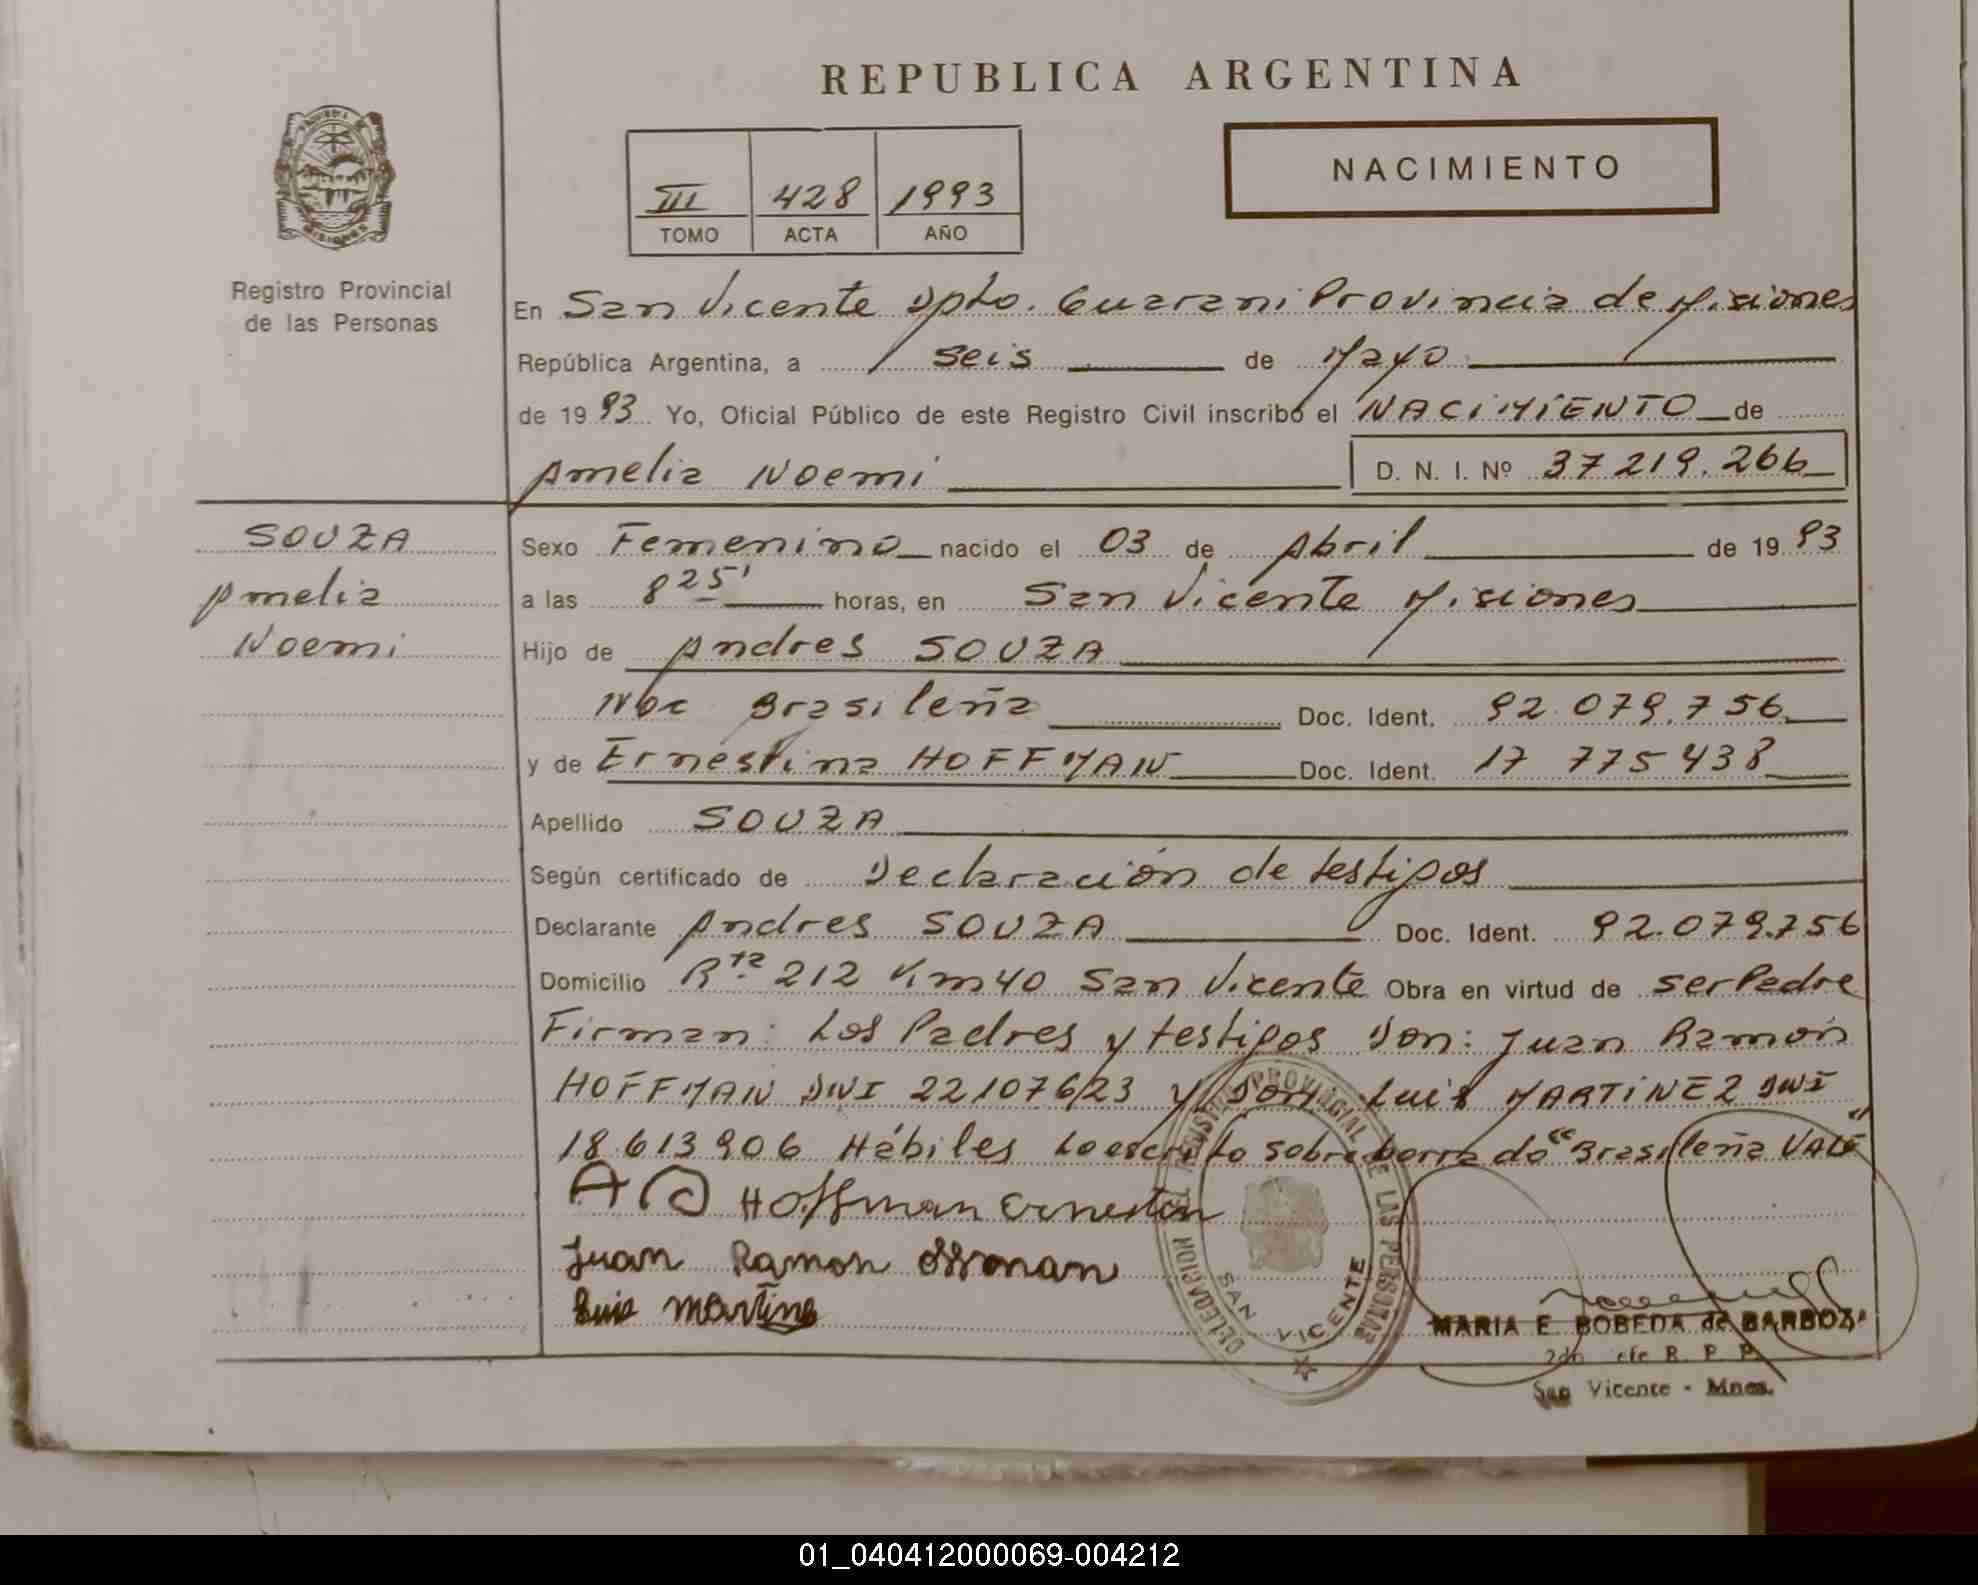 REPUBLICA ARGENTINA
NACIMIENTO
III 428 1993
TOMO ACTA AÑO
MISIONES
Registro Provincial
de las Personas
En San Vicente Dpto. Guarani Provincia de Misiones
República Argentina, a seis de Mayo
de 1993 Yo, Oficial Público de este Registro Civil inscribo el NACIMIENTO de
Amelia Noemi D. N. I. Nº 37219.266
SOUZA
Amelia
Noemi
Sexo Femenino nacido el 03 de Abril de 1993
a las 8 25' horas, en San Vicente Misiones
Hijo de Andres SOUZA
Nac Brasileña Doc. Ident. 92.079.756
y de Ernestina HOFFMAN Doc. Ident. 17 775438
Apellido SOUZA
Según certificado de Declaración de testigos
Declarante Andres SOUZA Doc. Ident. 92.079.756
Domicilio Rta 212 Km 40 San Vicente Obra en virtud de ser Padre
Firman: Los Padres y testigos Don: Juan Ramón
HOFFMAN DNI 22107623 y Don Luis MARTINEZ DNI
18.613906 Hábiles Lo escrito sobre borrado "Brasileña VALE"
Hoffman Ernestin
Juan Ramon Offman
Luis Martinez
DELEGACION DEL REGISTRO PROVINCIAL DE LAS PERSONAS
SAN VICENTE
MARIA E. BOBEDA de BARBOZA
R. P. P.
San Vicente - Mnes.
01_040412000069-004212